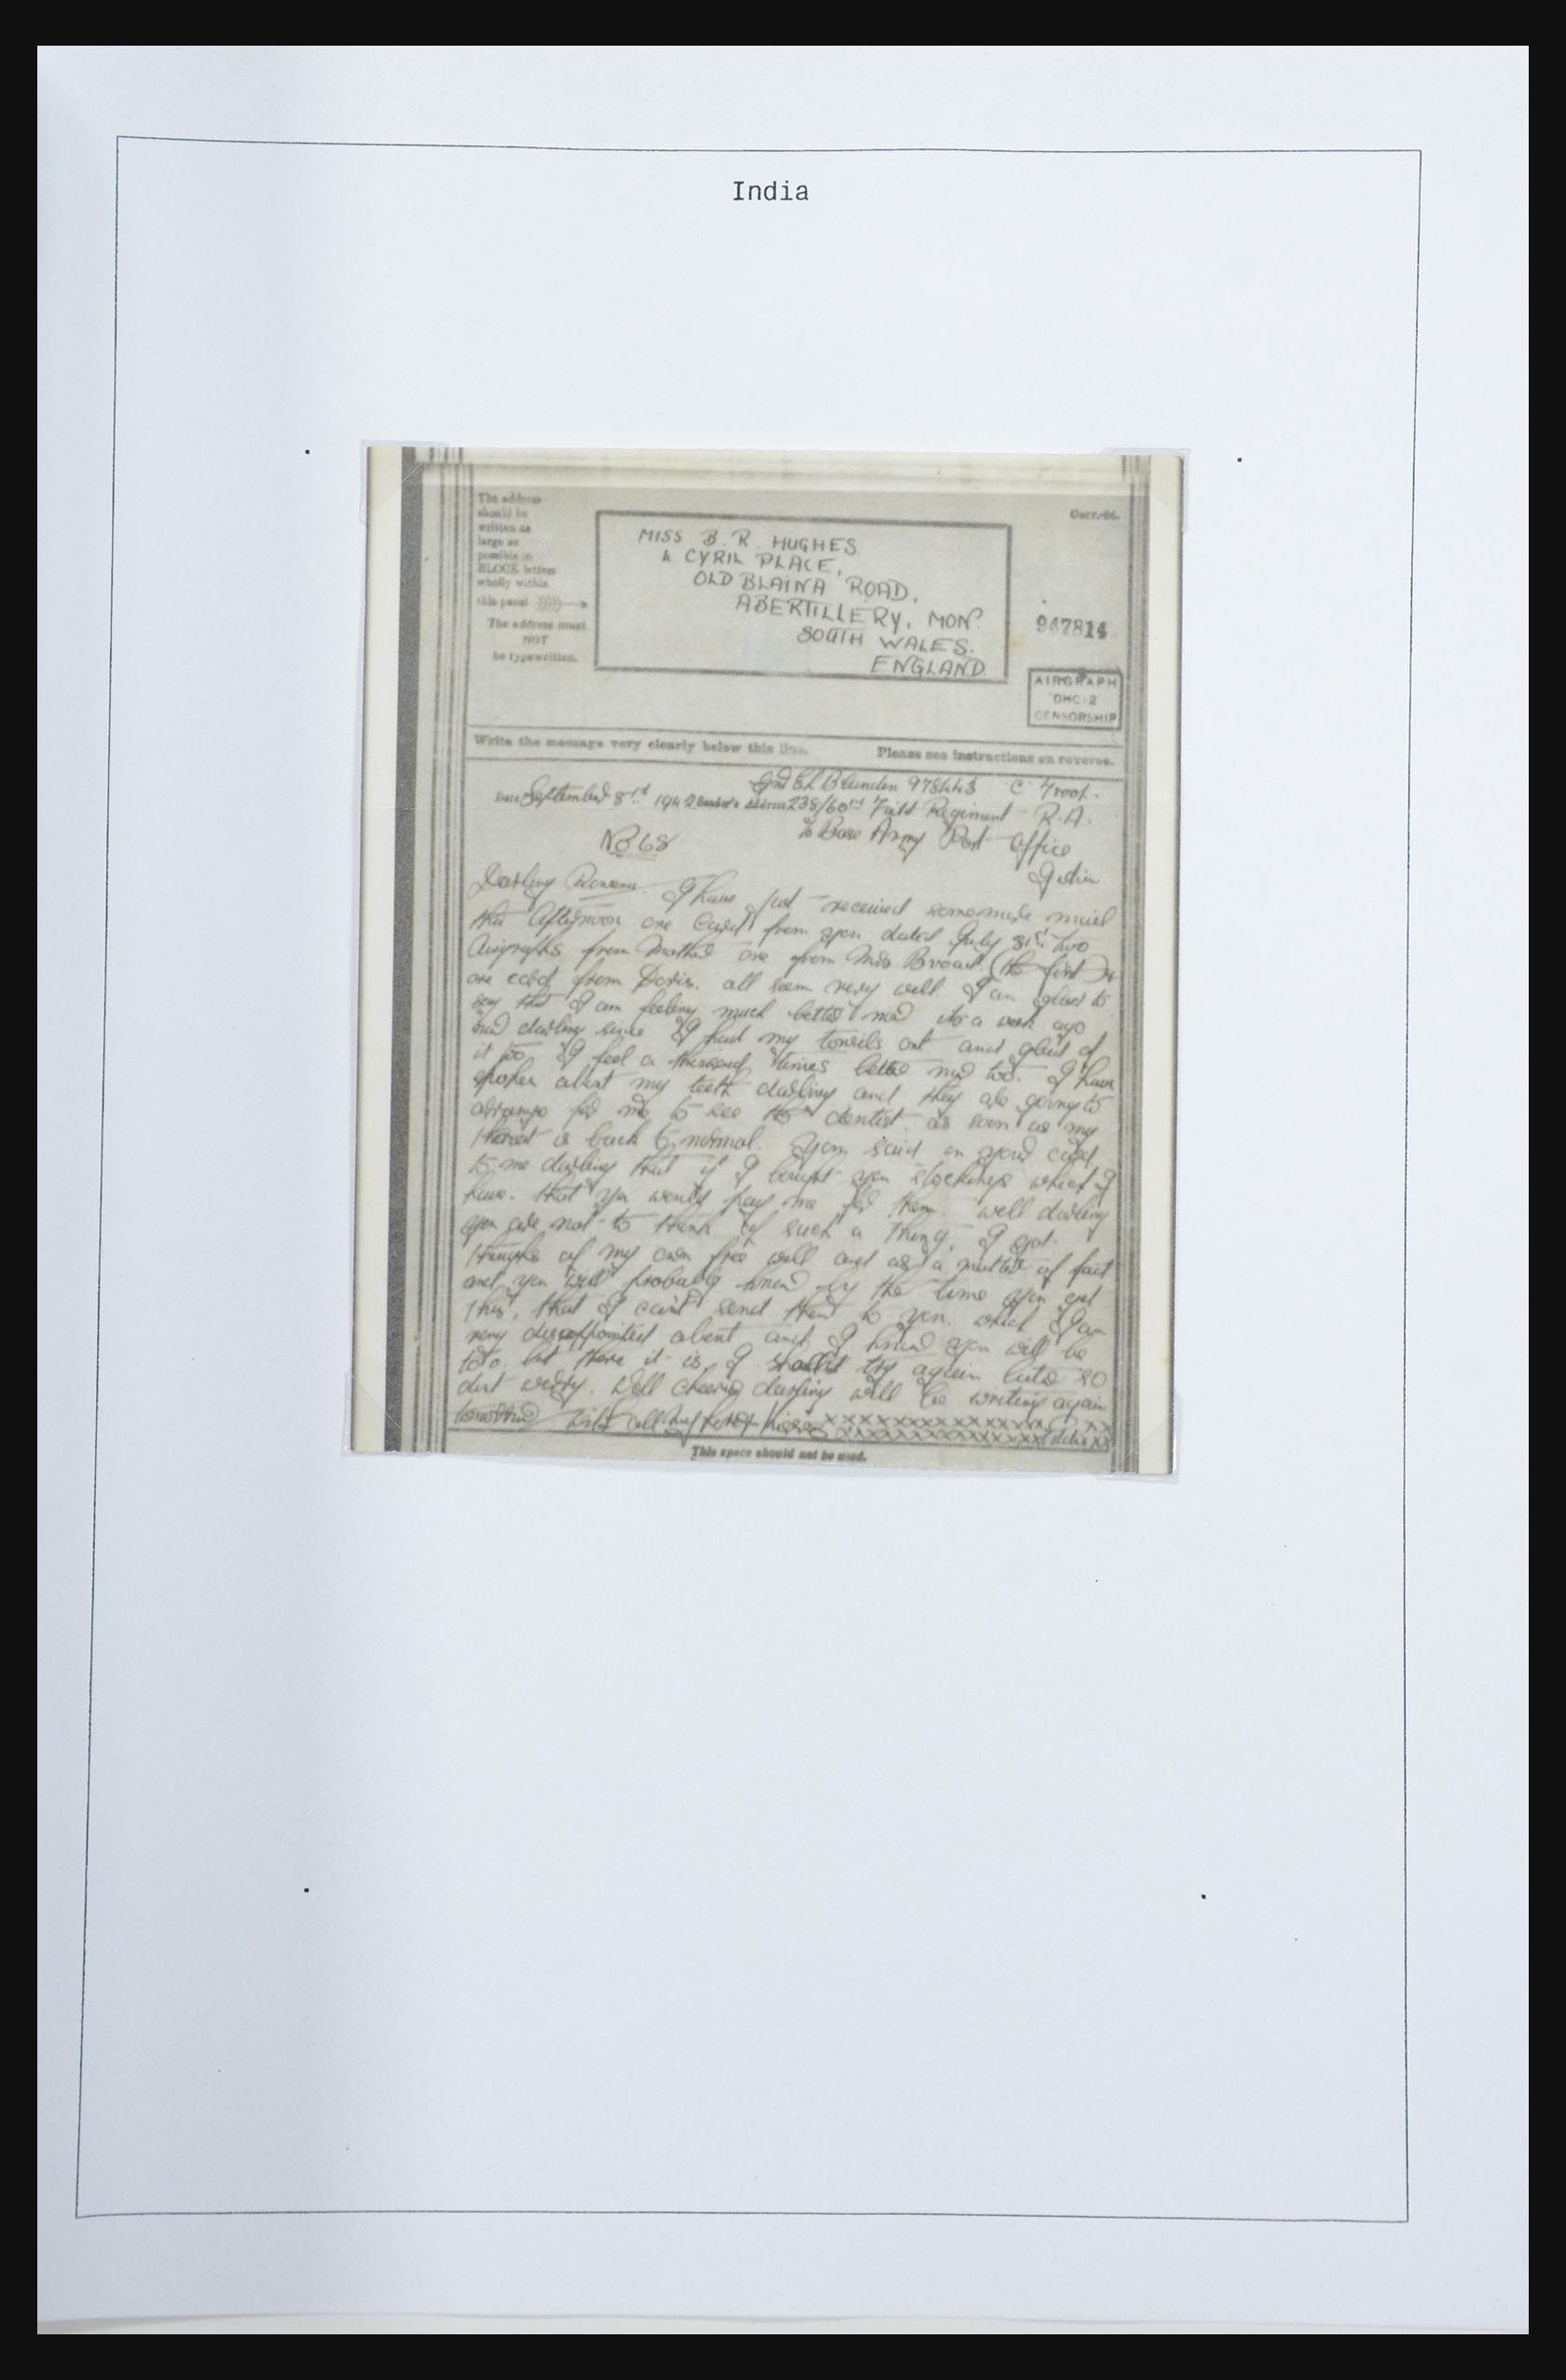 India
The address
should be
written as
large as
possible in
BLOCK letters
wholly within
this panel
The address must
NOT
be typewritten.
MISS B. R. HUGHES
4 CYRIL PLACE,
OLD BLAINA ROAD,
ABERTILLERY, MON.
SOUTH WALES.
ENGLAND
947814
AIRGRAPH
DHC/2
CENSORSHIP
Write the message very clearly below this line.
Please see instructions on reverse.
Blunden C Troop.
Date September 8 1942 Sender's Address 238/60 Field Regiment R.A.
No 68
c/o Base Army Post Office
India
Darling I have just received some more mail
this afternoon one card from you dated July 31st two
Airgraphs from Mother one from Mrs (the first)
one card from Doris. all seem very well. I am glad to
say that I am feeling much better now its a week ago
now darling since I had my tonsils out and glad of
it too I feel a thousand times better now too. I have
spoken about my teeth darling and they are going to
arrange for me to see the dentist as soon as my
throat is back to normal. You said on your card
to me darling that if I bought you stockings which I
have. that you would pay me for them. well darling
you are not to think of such a thing, I got
of my own free will and as a matter of fact
and you will probably know by the time you get
this, that I can't send them to you. which I am
very disappointed about and I know you will be
too but there it is I shall try again later so
dont worry. Well cheerio darling will be writing again
tomorrow all my love &
This space should not be used.